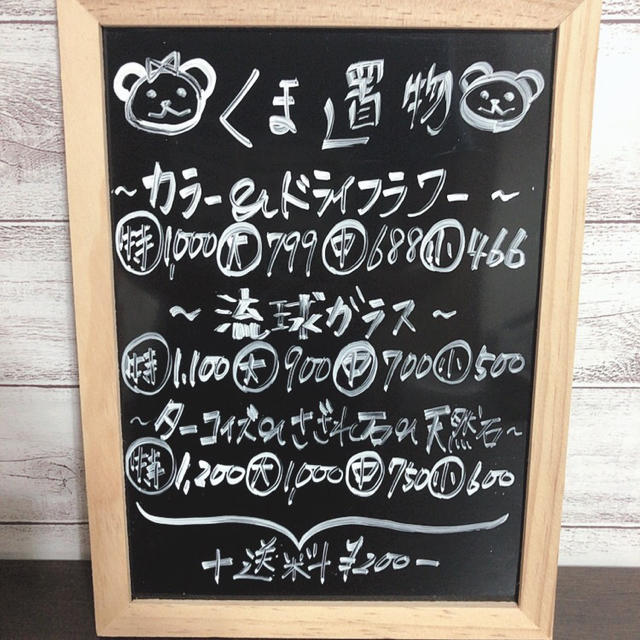 くま置物
~カラー&ドライフラワー~
特1,000大799中688小466
~流球ガラス~
特1,100大900中700小500
~ターコイズ&さざれ石&天然石~
特1,200大1,000中750小600
+送料¥200-